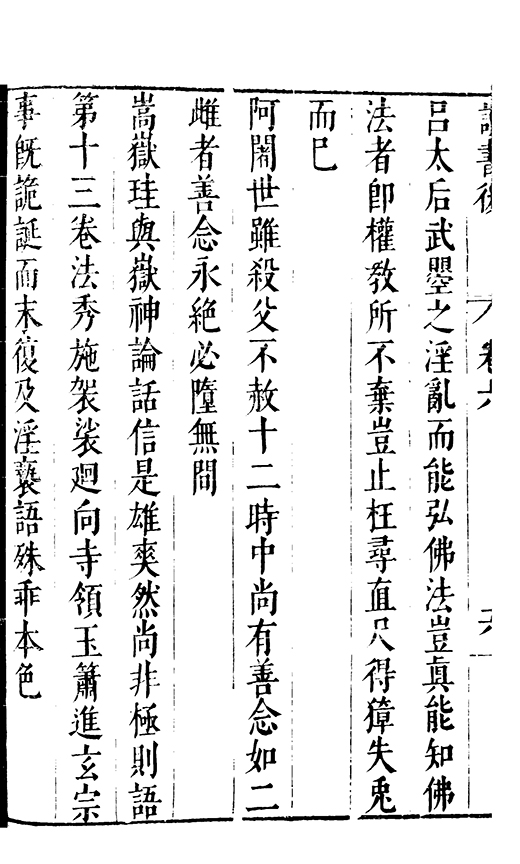 讀書後　卷六　六
呂太后武曌之淫亂而能弘佛法豈真能知佛
法者卽權敎所不棄豈止枉尋直尺得獐失兎
而已
阿闍世雖殺父不赦十二時中尚有善念如二
雌者善念永絕必墮無間
嵩嶽珪與嶽神論話信是雄爽然尚非極則語
第十三卷法秀施袈裟廻向寺領玉簫進玄宗
事旣詭誕而末復及淫褻語殊乖本色